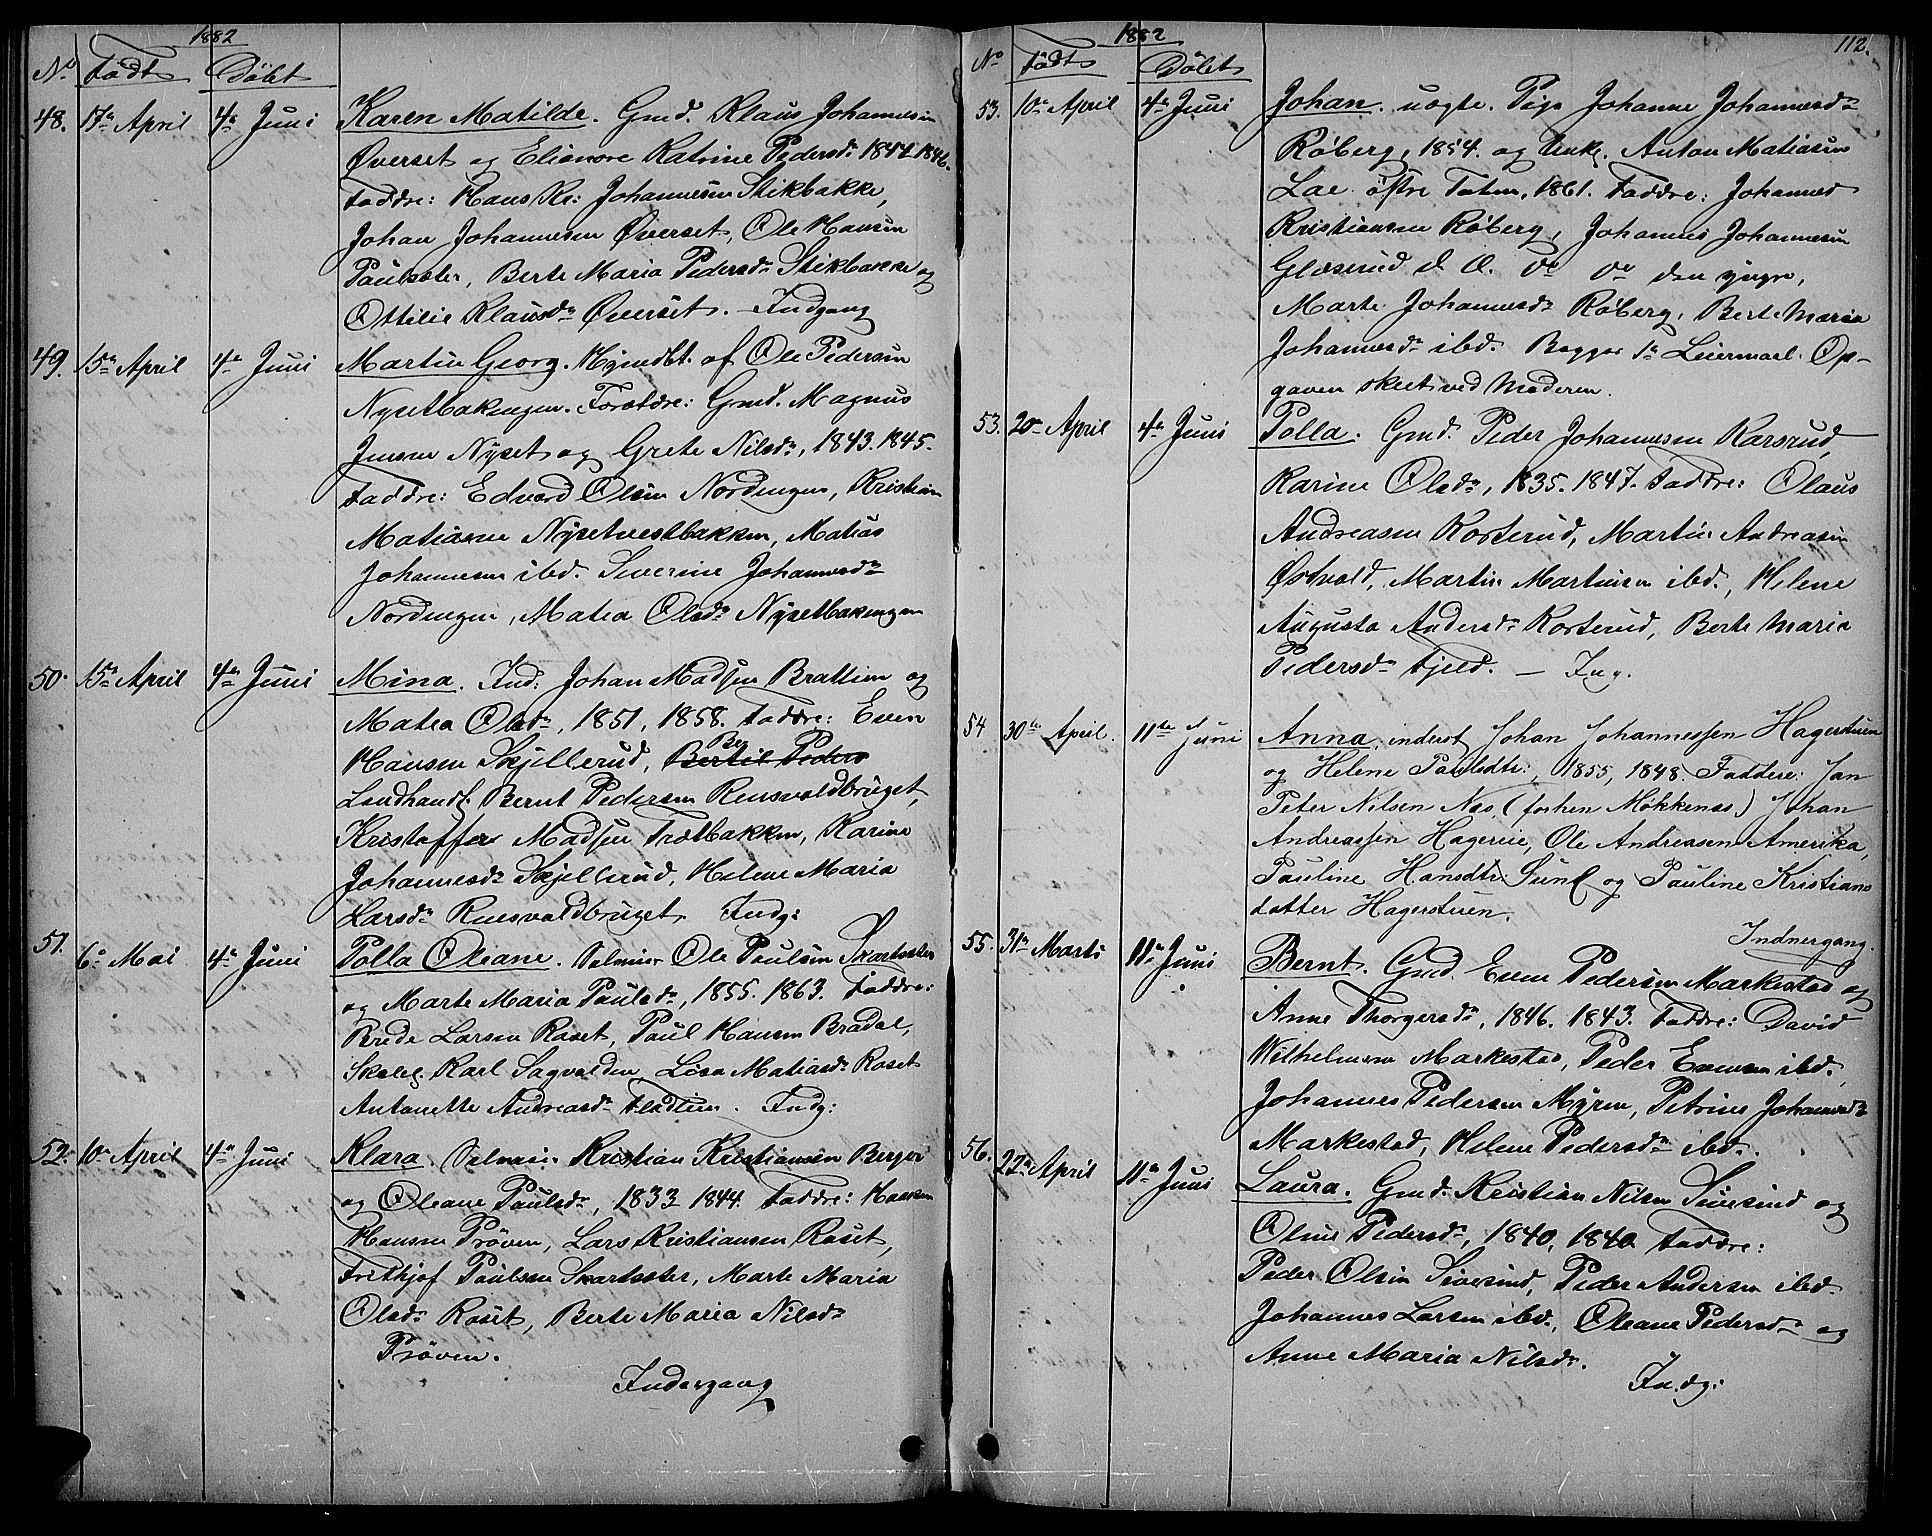 1882
No Født Døbt
48. 17de April 4de Juni Karen Matilde. Gmd. Klaus Johannesen
Øverset og Elianore Katrine Pedersdr 1844. 1846.
Faddre: Hans Kr: Johannesen Stikbakke,
Johan Johannesen Øverset, Ole Hansen
Paulseter, Berte Maria Pedersdr Stikbakke og
Ottilie Klausdr Øverset. - Indgang
49. 15de April 4de Juni Martin Georg. Hjemdbt. af Ole Pedersen
Nysetbakengen. Forældre: Gmd. Magnus
Jensen Nyset og Grete Nilsdr, 1843. 1845.
Faddre: Edvard Olsen Nordengen, Kristian
Matiasen Nysetvestbakken, Matias
Johannesen ibd. Severine Johannesdr
Nordengen, Matea Olsdr Nysetbakengen
50. 15de April 4de Juni Mina. Ind: Johan Madsen Brattlien og
Matea Olsdr, 1851, 1858. Faddre: Even
Hansen Skjellerud, Bertil Peders
Landhandl. Bernt Pedersen Rensvoldbruget,
Kristoffer Madsen Trætbakken, Karine
Johannesdr Skjellerud, Helene Maria
Larsdr Rensvoldbruget. Indg:
51. 6te Mai 4de Juni Polla Oleane. Selveier Ole Paulsen Skartseter
og Marte Maria Paulsdr, 1855. 1863. Faddre:
Brede Larsen Roset, Paul Hansen Bradal,
Skolel. Karl Sagvolden, Lisa Matiasdr Roset
Antonette Andreasdr Fladlien. Indg:
52. 10de April 4de Juni Klara. Selveier Kristian Kristiansen Berger
og Oleane Paulsdr, 1833 1844. Faddre: Haaken
Hansen Prøven, Lars Kristiansen Roset,
Frithjof Paulsen Skartseter, Marte Maria
Olsdr Roset, Berte Maria Nilsdr
Prøven.
Indergang
1882
112.
No Født Døbt
53. 10de April 4de Juni Johan. uægte. Pige Johanne Johannesdr
Røberg, 1854. og Unk. Anton Matiasen
Lae østre Toten, 1861. Faddre: Johannes
Kristiansen Røberg, Johannes Johannesen
Glæserud d Æ. do do den yngre,
Marte Johannesdr Røberg, Berte Maria
Johannesdr ibd. Begges 1ste Leiermaal. Op-
gaven skeet ved Moderen.
53. 20de April 4de Juni Polla. Gmd. Peder Johannesen Karsrud,
Karine Olsdr, 1835. 1847. Faddre: Olaus
Andreasen Korterud, Martin Andreasen
Østvold, Martin Martinsen ibd., Helene
Augusta Andersdr Korterud, Berte Maria
Pedersdr Fjeld. - Ing.
54 30te April. 11te Juni Anna, inderst Johan Johannessen Hagerstuen
og Helene Paulsdtr:, 1855, 1848. Faddere: Jan
Peter Nilsen Næs (forhen Mokkenæs) Johan
Andreassen Hagereie, Ole Andreasen Amerika,
Pauline Hansdtr Sund og Pauline Kristians
datter Hagerstuen.
Indnergang.
55. 31te Marts 11te Juni Bernt. Gmd. Even Pedersen Markestad og
Anne Thorgersdr, 1846. 1843. Faddre: David
Wilhelmsen Markestad, Peder Evensen ibd.,
Johannes Pedersen Myren, Petrine Johannesdr
Markestad, Helene Pedersdr ibd.
56. 22de April 11te Juni Laura. Gmd. Kristian Nilsen Sivesind og
Oline Pedersdr, 1840, 1840. Faddre:
Peder Olsen Sivesind, Peder Andersen ibd.
Johannes Larsen ibd., Oleane Pedersdr og
Anne Maria Nilsdr.
Indg: